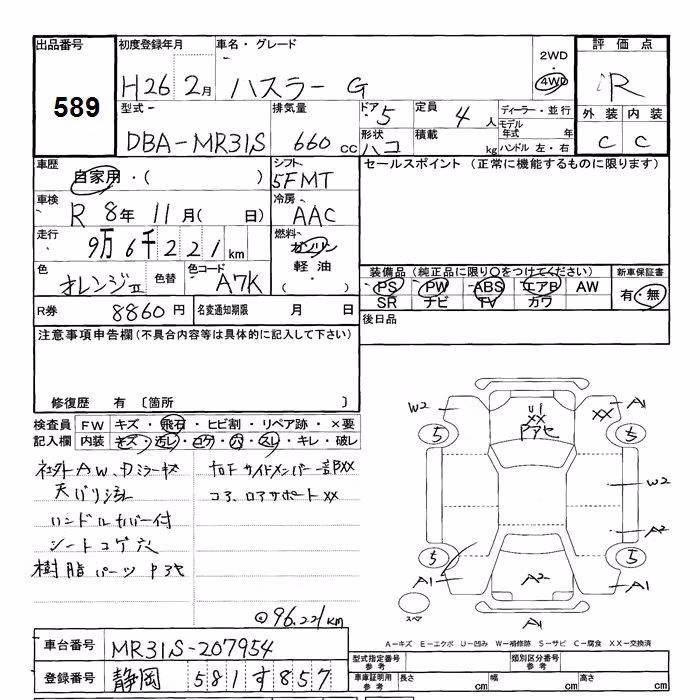 出品番号 初度登録年月 車名・グレード 評価点
589 H26 2月 ハスラー G 2WD 4WD R
型式 排気量 ドア 5 定員 4人 ディーラー・並行 外装 内装
DBA-MR31S 660cc 形状 ハコ 積載 kg モデル年式 年 ハンドル 左・右 C C
車歴 自家用・( ) シフト 5FMT セールスポイント(正常に機能するものに限ります)
車検 R 8年 11月( 日) 冷房 AAC
走行 9万6千221km 燃料 ガソリン 軽油・( )
色 オレンジⅡ 色替 色コード A7K
装備品(純正品に限り○をつけてください) 新車保証書
PS PW ABS エアB AW 有・無
SR ナビ TV カワ
R券 8860円 名変通知期限 月 日 後日品
注意事項申告欄(不具合内容等は具体的に記入して下さい)
修復歴 有 〔箇所 〕
検査員 FW キズ・飛石・ヒビ割・リペア跡・×要
記入欄 内装 キズ・汚レ・コゲ・穴・スレ・キレ・破レ
社外AW、Dミラーキズ
天バリ汚レ
ハンドルカバー付
シートコゲ穴
樹脂パーツ
右Fサイドメンバー一部XX
コア、ロアサポートXX
W2 A1
U1 XX XX
5 5
W2
A2
5 5
A1 A2 A1
スペア A1
96.221km
A-キズ E-エクボ U-凹み W-補修跡 S-サビ C-腐食 XX-交換済
車台番号 MR31S-207954 型式指定番号 参考 類別区分番号 参考
登録番号 静岡 581す857 車庫証明用 参考 長さ cm 幅 cm 高さ cm